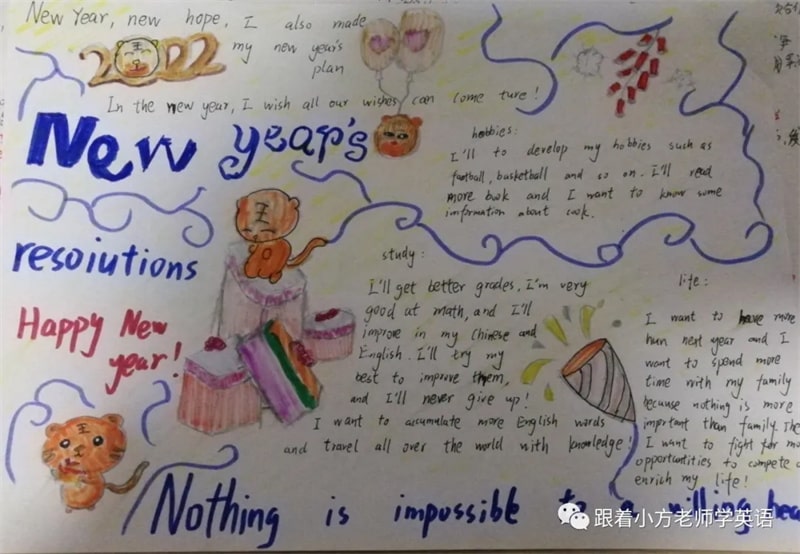 New Year, new hope, I also made
my new year's
plan
2022
In the new year, I wish all our wishes can come ture!
New year's
hobbies:
I'll to develop my hobbies such as
football, basketball and so on. I'll read
more book and I want to know some
imformation about cook.
resoiutions
Happy New
year!
study:
I'll get better grades, I'm very
good at math, and I'll
improve in my Chinese and
English. I'll try my
best to improve them,
and I'll never give up!
I want to accumulate more English words
and travel all over the world with knowledge!
life:
I want to have more
hun next year and I
want to spend more
time with my family
because nothing is more
important than family. The
I want to fight for mo
opportunities to compete a
enrich my life!
Nothing is impossible to a willing hea
跟着小方老师学英语